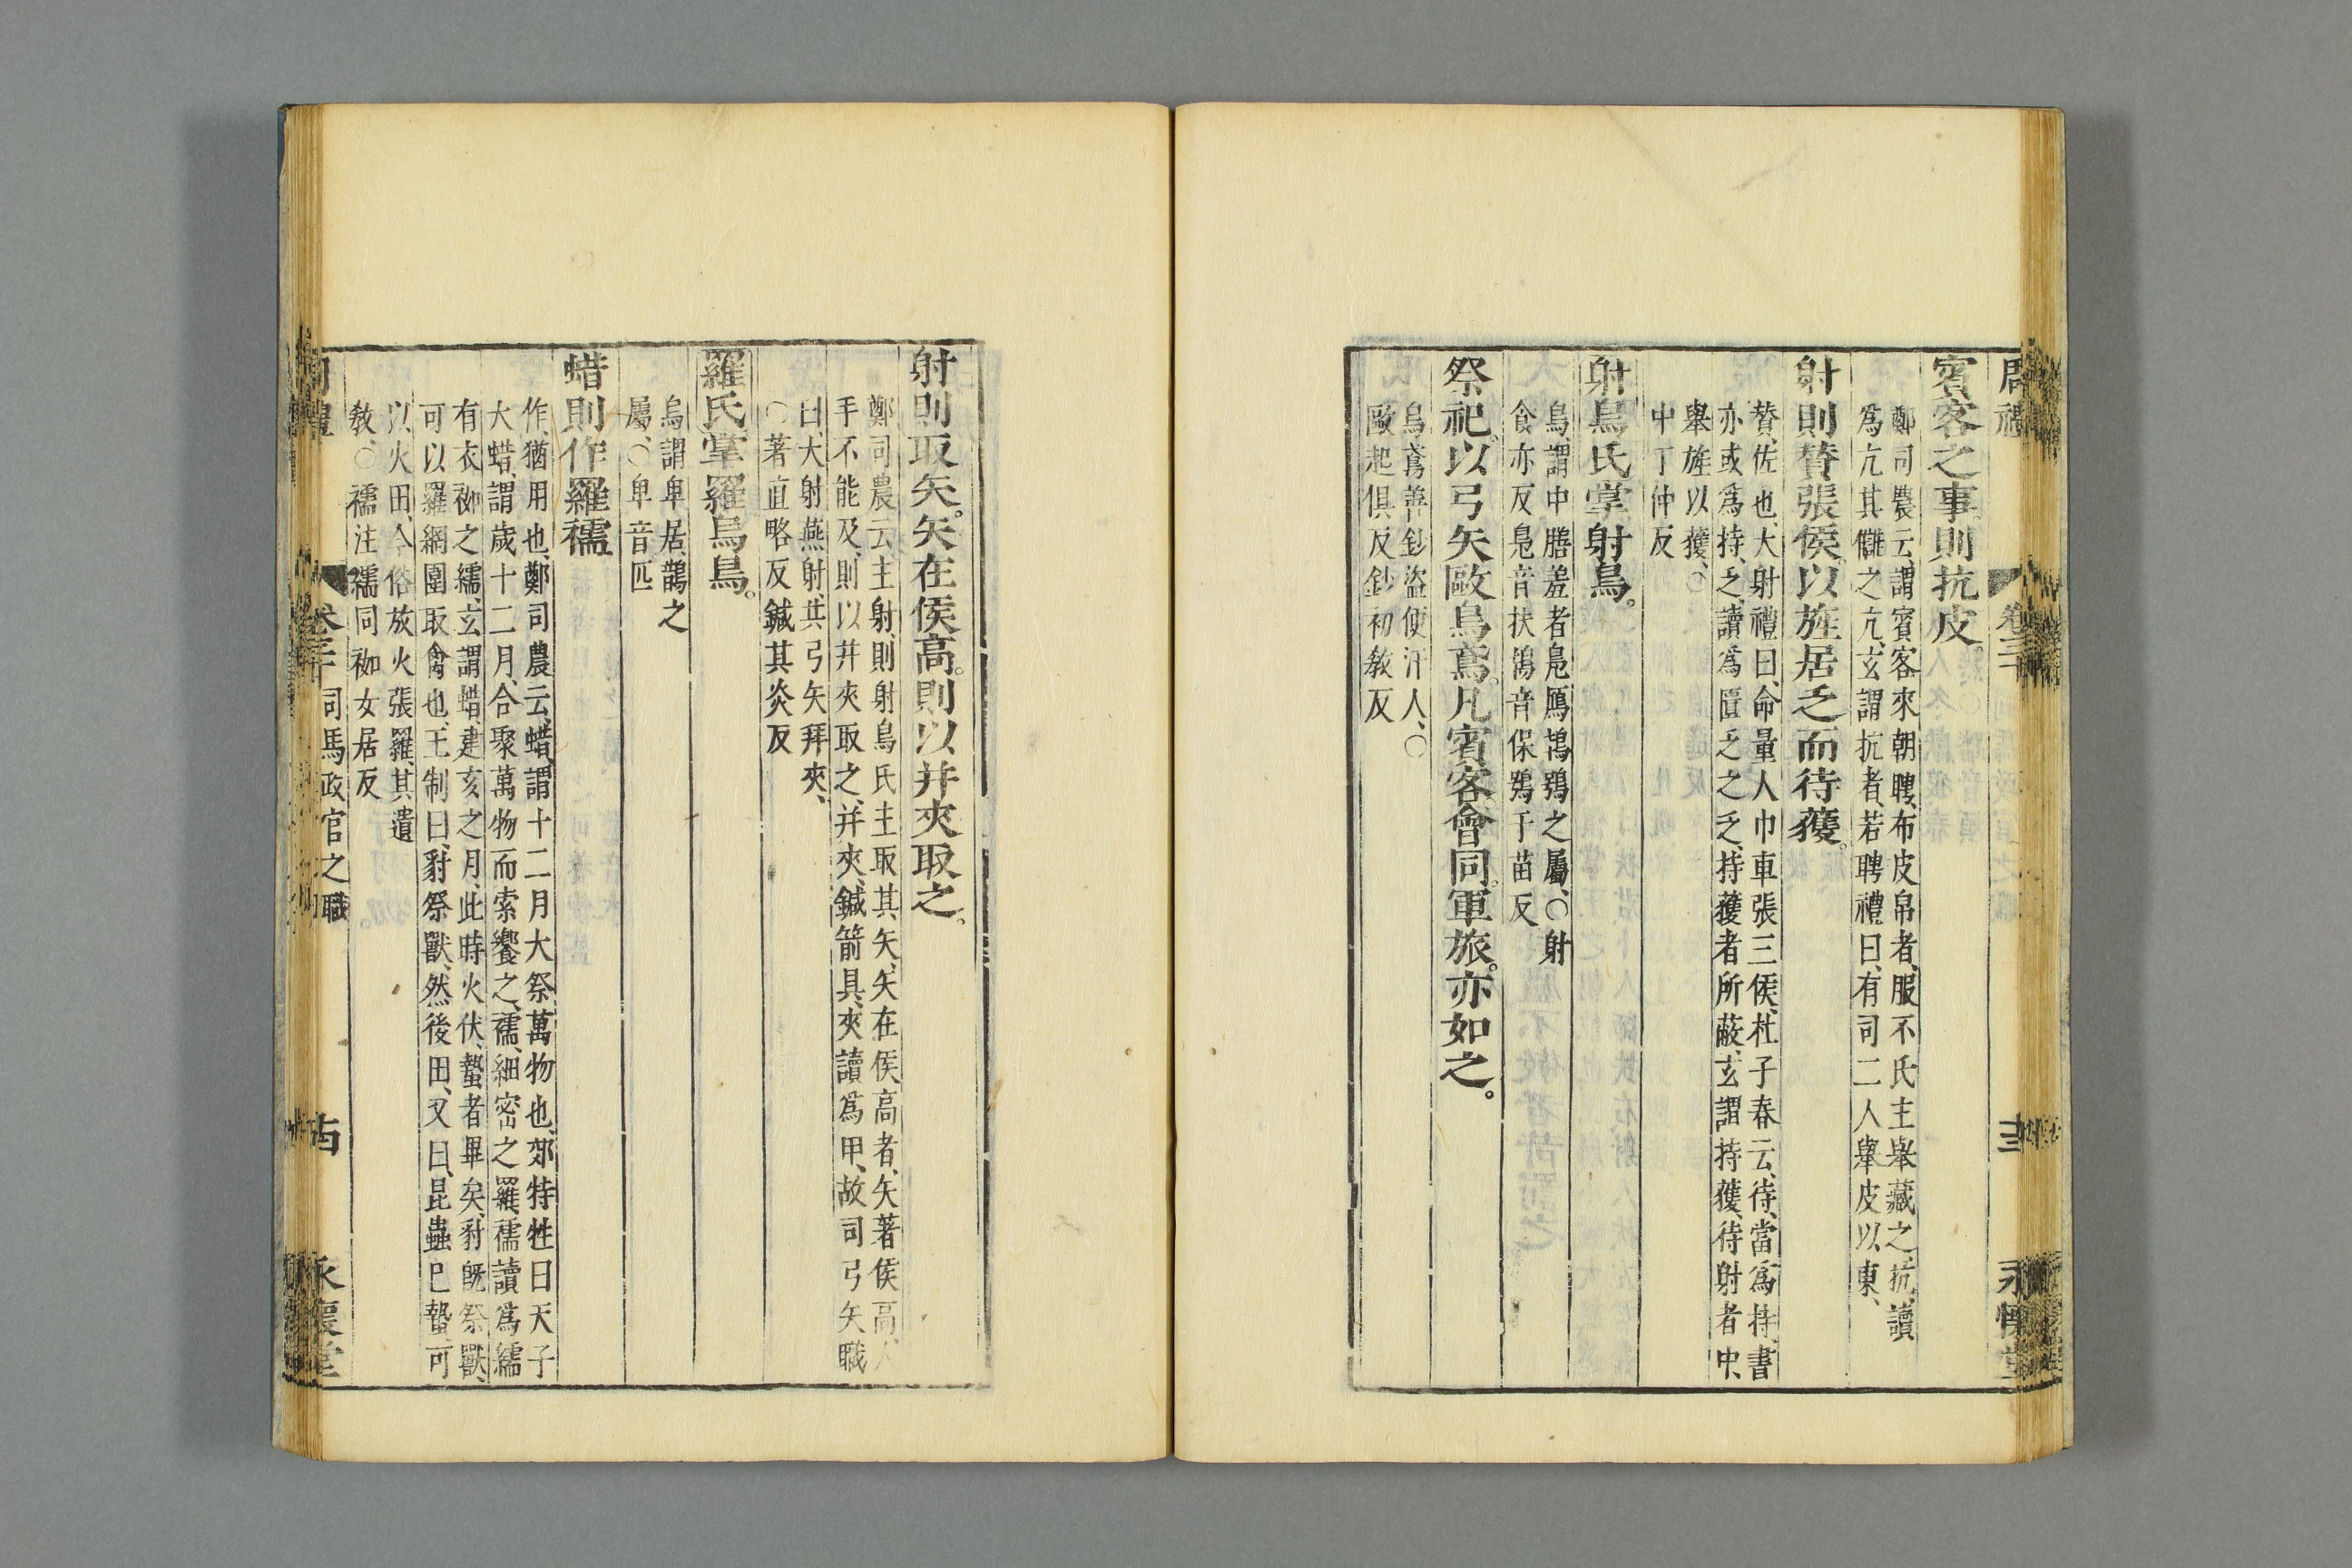 周禮 卷三十 十三 永懷堂
賓客之事則抗皮。
鄭司農云、謂賓客來朝聘、布皮帛者、服不氏主舉藏之、抗、讀
爲亢其讎之亢、玄謂抗者、若聘禮曰、有司二人舉皮以東、
射則贊張侯。以旌居乏而待獲。
贊、佐也、大射禮曰、命量人巾車張三侯、杜子春云、待、當爲持、書
亦或爲持、乏、讀爲匱乏之乏、持獲者所蔽、玄謂持獲、待射者中、
舉旌以獲、○
中丁仲反
射鳥氏掌射鳥。
鳥、謂中膳羞者、鳧鴈鴇鴞之屬、○射
食亦反鳧音扶鴇音保鴞于苗反
祭祀。以弓矢敺烏鳶。凡賓客會同。軍旅。亦如之。
烏鳶善鈔盜便汙人、○
敺起俱反鈔初教反
射則取矢。矢在侯高。則以并夾取之。
鄭司農云主射、則射鳥氏主取其矢、矢在侯高者、矢著侯高、人
手不能及、則以并夾取之、并夾、鍼箭具、夾讀爲甲、故司弓矢職
曰、大射燕射、共弓矢并夾、
○著直略反鍼其炎反
羅氏掌羅烏鳥。
烏謂卑居、鵲之
屬、○卑音匹
蜡則作羅襦
作猶用也、鄭司農云、蜡、謂十二月大祭萬物也、郊特牲曰天子
大蜡、謂歲十二月、合聚萬物而索饗之、襦、細密之羅、襦讀爲繻
有衣袽之繻、玄謂蜡、建亥之月、此時火伏、蟄者畢矣、豺旣祭獸、
可以羅網圍取禽也、王制曰、豺祭獸、然後田、又曰、昆蟲已蟄、可
以火田、今俗放火張羅、其遺
敎、○襦注繻同袽女居反
周禮 卷三十 司馬政官之職 十四 永懷堂